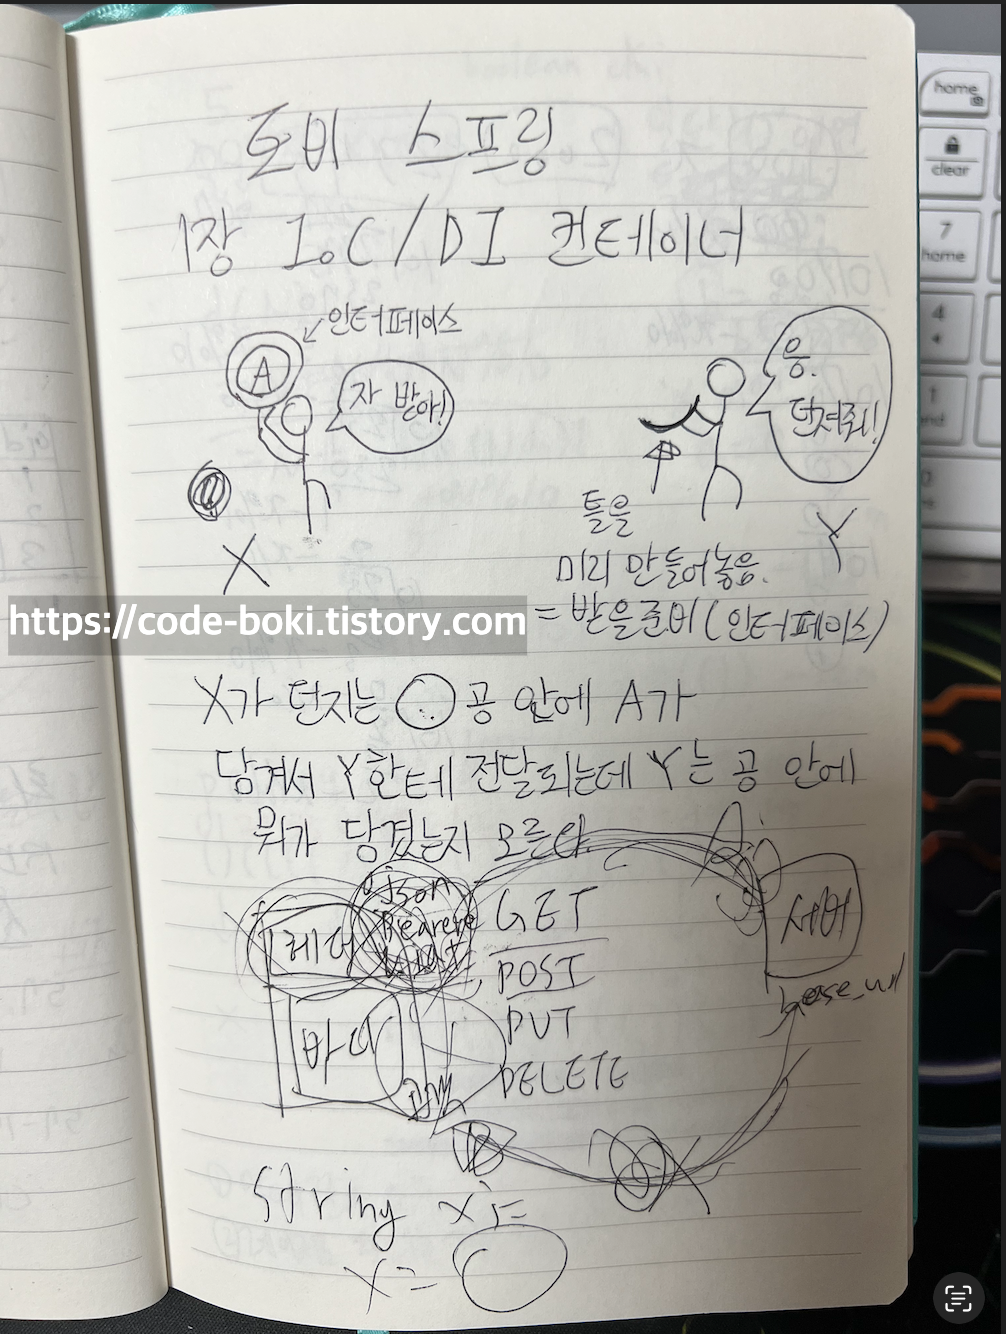 토비 스프링
1장 IoC/DI 컨테이너
인터페이스
A
자 받아!
응.
던져줘!
틀을
미리 만들어놓음.
= 받을준비(인터페이스)
X
Y
https://code-boki.tistory.com
X가 던지는 공 안에 A가
담겨서 Y한테 전달되는데 Y는 공 안에
뭐가 담겼는지 모른다.
json
헤더
GET
서버
POST
base_url
바디
PUT
DELETE
String x;=
x=
home
clear
7
home
4
1